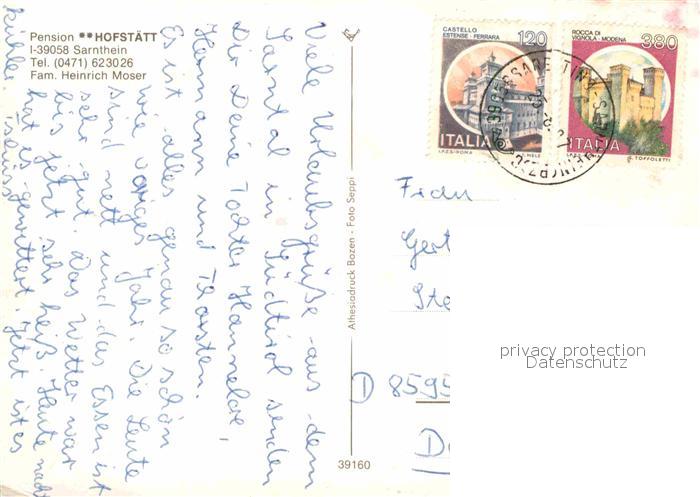 Pension **HOFSTÄTT
I-39058 Sarnthein
Tel. (0471) 623026
Fam. Heinrich Moser
Viele Urlaubsgrüße aus dem
Sarntal in Südtirol senden
Dir Deine Tochter Hannelore,
Hermann und Thorsten.
Es ist alles genau so schön
wie voriges Jahr. Die Leute
sind nett und das Essen ist
sehr gut. Das Wetter war
bis jetzt sehr heiß. Heute nacht
hat es gewittert. Jetzt ist es
kühler.
Athesiadruck Bozen - Foto Seppi
39160
CASTELLO
ESTENSE - FERRARA
120
ITALIA
I.P.Z.S. - ROMA
ROCCA DI
VIGNOLA - MODENA
380
ITALIA
I.P.Z.S. - ROMA
E. TOFFOLETTI
Frau
Gert
Ste
D 8595
privacy protection
Datenschutz